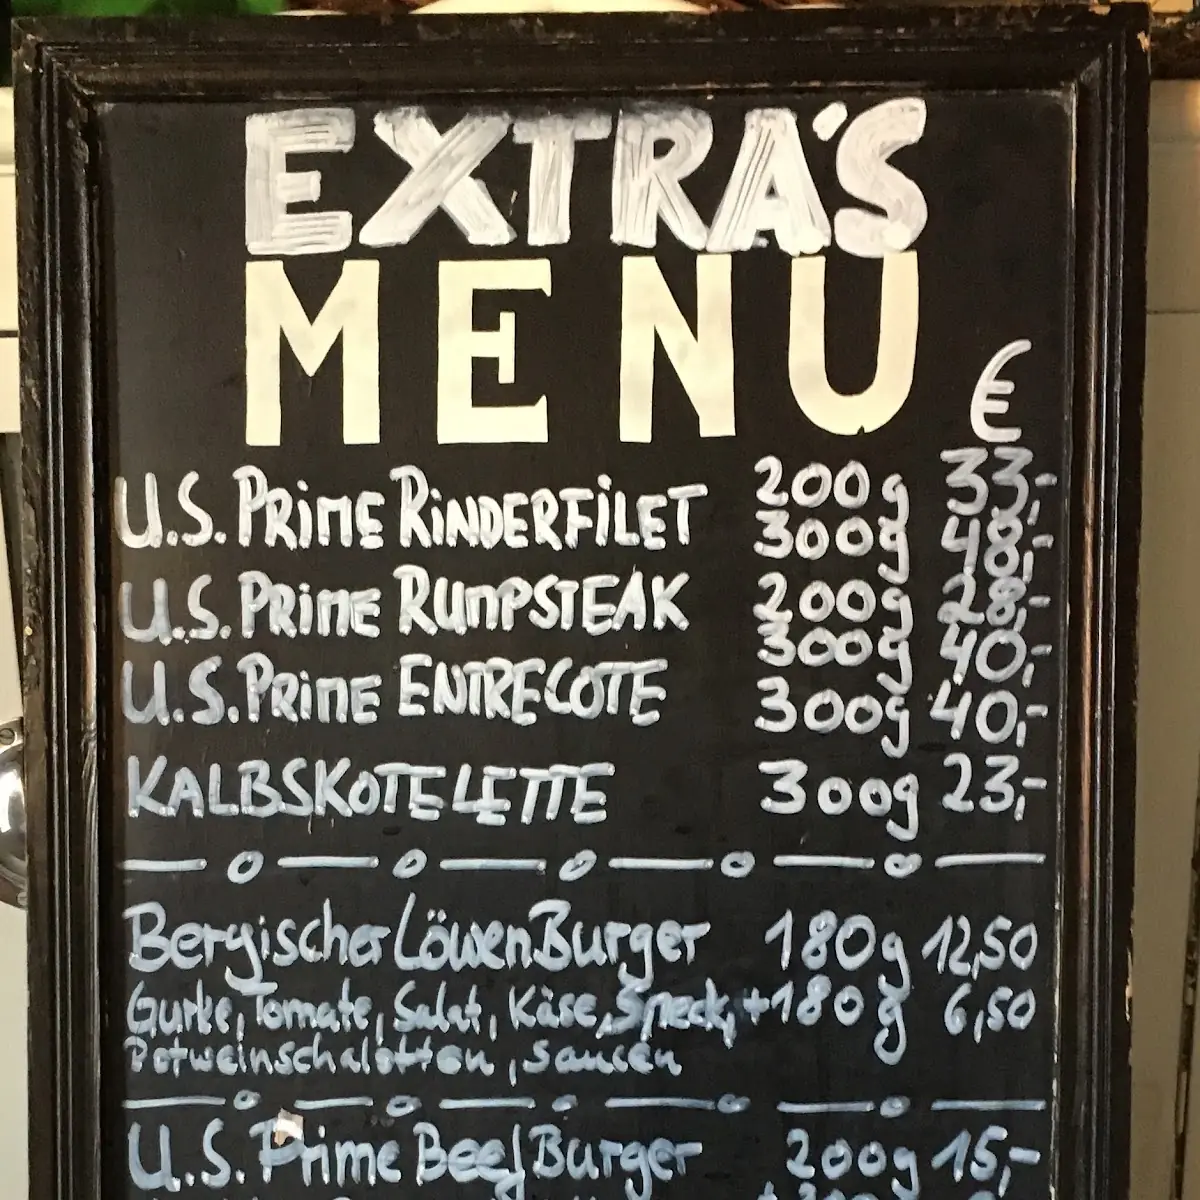 EXTRA'S
MENU
€
U.S. PRIME RINDERFILET 200g 33,-
300g 48,-
U.S. PRIME RUMPSTEAK 200g 28,-
300g 40,-
U.S. PRIME ENTRECOTE 300g 40,-
KALBSKOTELETTE 300g 23,-
Bergischer Löwen Burger 180g 12,50
Gurke, Tomate, Salat, Käse, Speck, +180g 6,50
Rotweinschalotten, saucen
U.S. Prime Beef Burger 200g 15,-